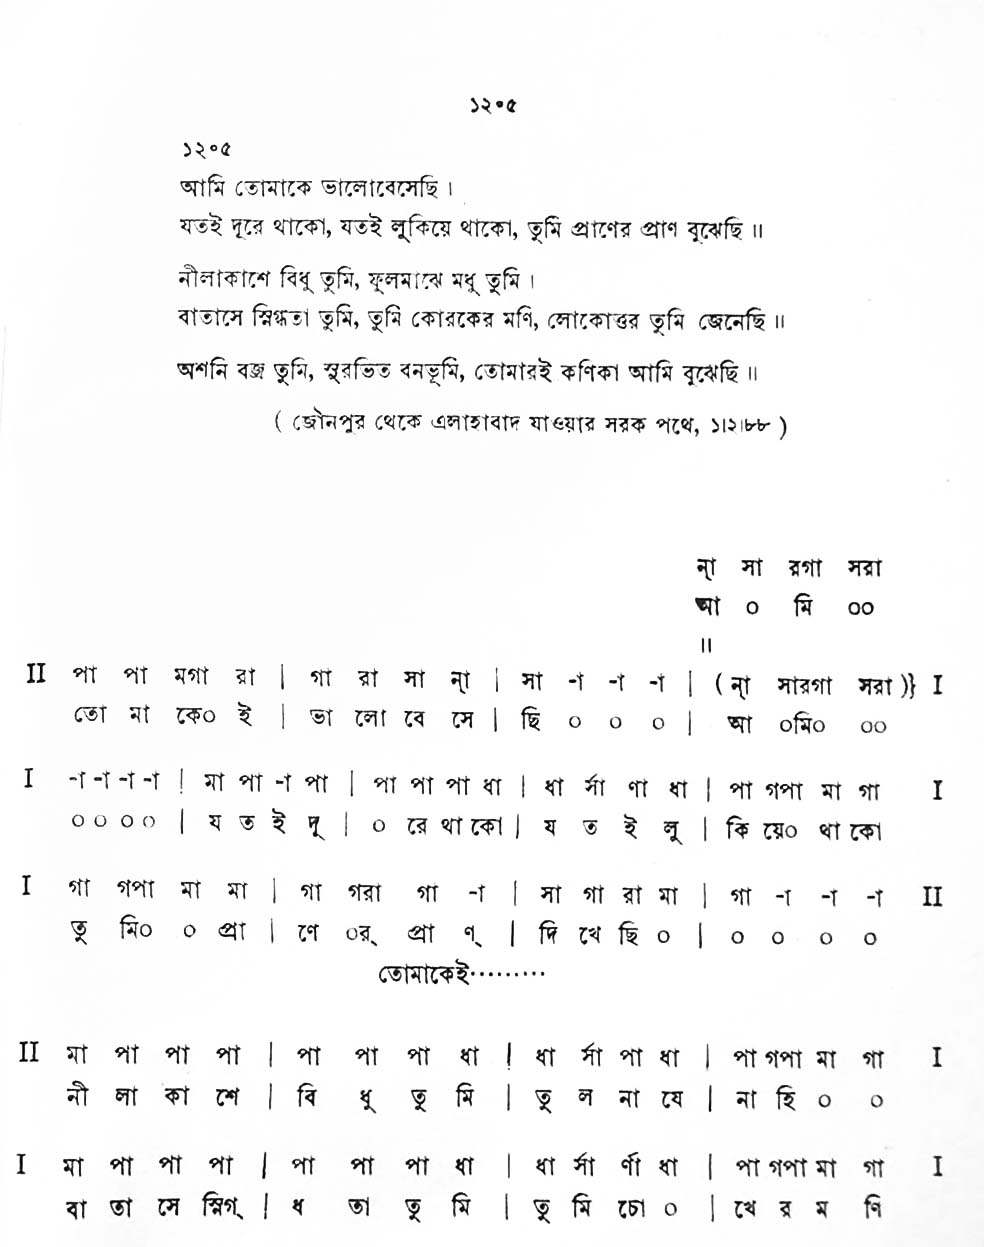 ১২০৫
১২০৫
আমি তোমাকে ভালোবেসেছি ।
যতই দূরে থাকো, যতই লুকিয়ে থাকো, তুমি প্রাণের প্রাণ বুঝেছি ॥
নীলাকাশে বিধু তুমি, ফুলমাঝে মধু তুমি ।
বাতাসে স্নিগ্ধতা তুমি, তুমি কোরকের মণি, লোকোত্তর তুমি জেনেছি ॥
অশনি বজ্র তুমি, সুরভিত বনভূমি, তোমারই কণিকা আমি বুঝেছি ॥
( জৌনপুর থেকে এলাহাবাদ যাওয়ার সরক পথে, ১।২।৮৮ )
ন্া সা রগা সরা
আ ০ মি ০০
॥
II পা পা মগা রা | গা রা সা ন্া | সা -া -া -া | ( ন্া সারগা সরা )} I
তো মা কে০ ই | ভা লো বে সে | ছি ০ ০ ০ | আ ০মি০ ০০
I -া -া -া -া | মা পা -া পা | পা পা পা ধা | ধা র্সা ণা ধা | পা গপা মা গা I
০ ০ ০ ০ | য ত ই দূ | ০ রে থা কো | য ত ই লু | কি য়ে০ থা কো
I গা গপা মা মা | গা গরা গা -া | সা গা রা মা | গা -া -া -া II
তু মি০ ০ প্রা | ণে ০র্ প্রা ণ্ | দি খে ছি ০ | ০ ০ ০ ০
তোমাকেই·········
II মা পা পা পা | পা পা পা ধা | ধা র্সা পা ধা | পা গপা মা গা I
নী লা কা শে | বি ধু তু মি | তু ল না যে | না হি ০ ০
I মা পা পা পা | পা পা পা ধা | ধা র্সা র্ণা ধা | পা গপা মা গা I
বা তা সে স্নিগ্ | ধ তা তু মি | তু মি চো ০ | খে র ম ণি